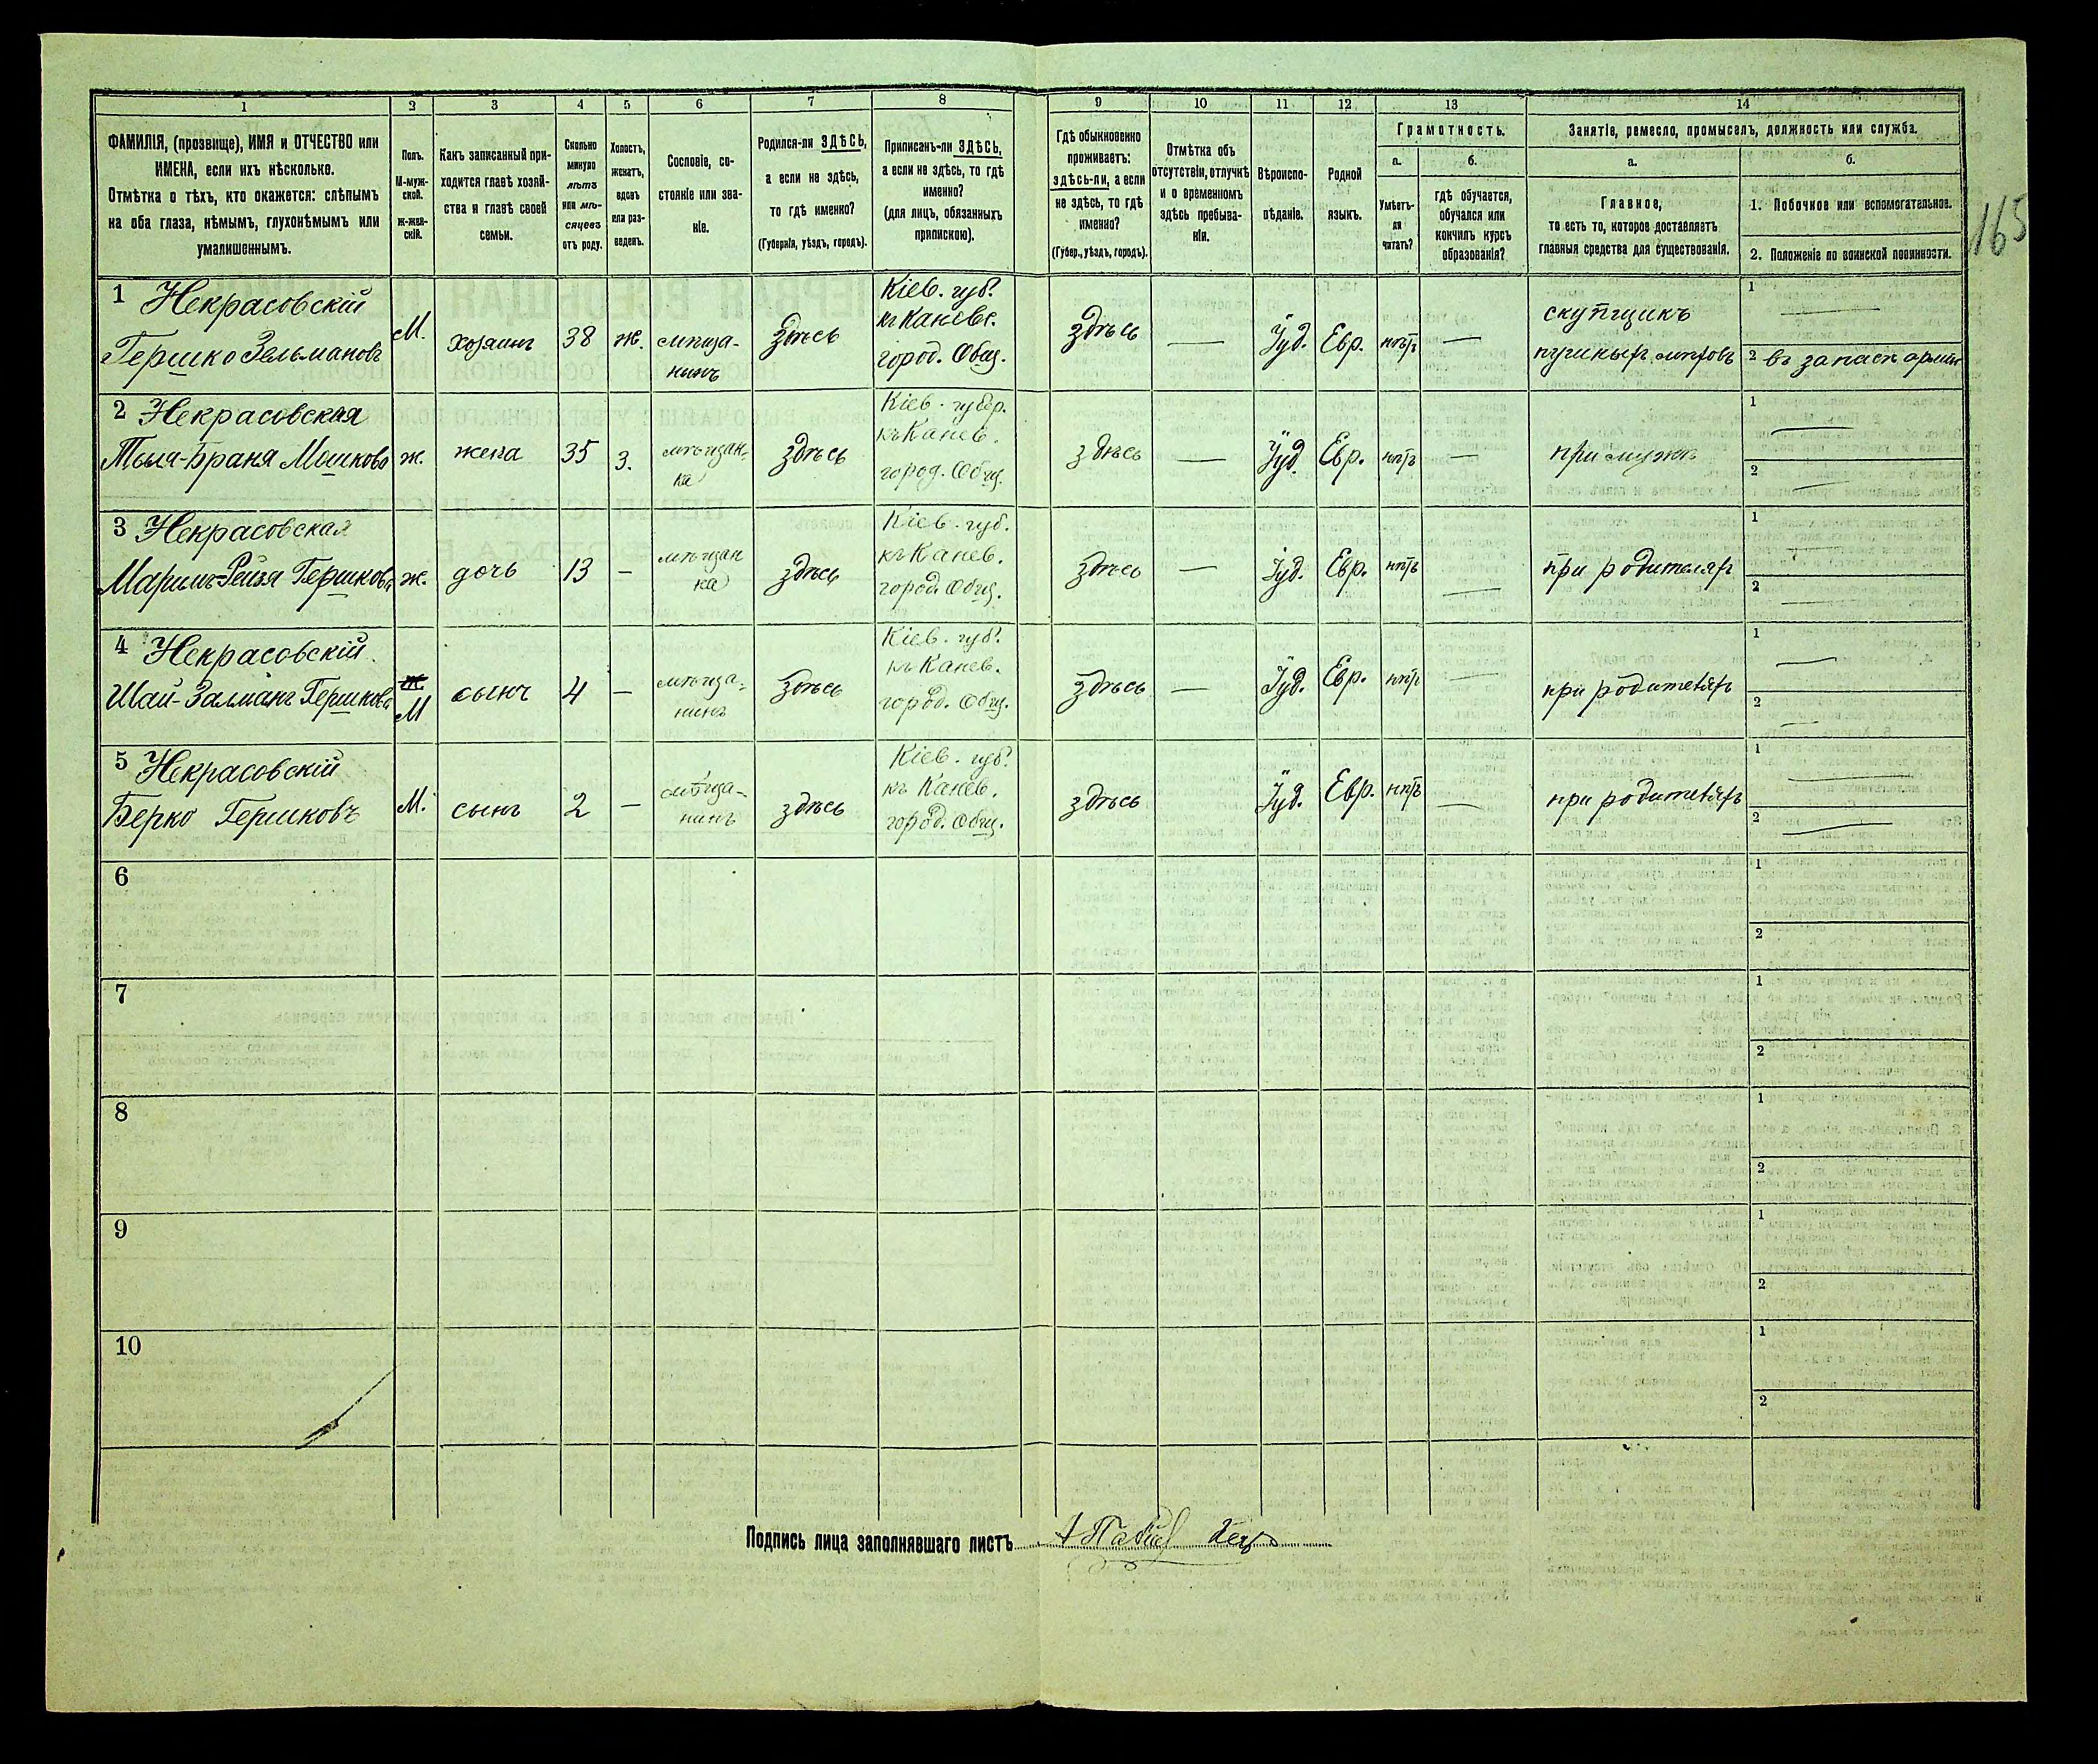 1 2 3 4 5 6 7 8 9 10 11 12 13 14
ФАМИЛІЯ, (прозвище), ИМЯ и ОТЧЕСТВО или
ИМЕНА, если ихъ нѣсколько.
Отмѣтка о тѣхъ, кто окажется: слѣпымъ
на оба глаза, нѣмымъ, глухонѣмымъ или
умалишеннымъ.
Полъ.
М-муж-
ской.
ж-жен-
скій.
Какъ записанный при-
ходится главѣ хозяй-
ства и главѣ своей
семьи.
Сколько
минуло
лѣтъ
или мѣ-
сяцевъ
отъ роду.
Холостъ,
женатъ,
вдовъ
или раз-
веденъ.
Сословіе, со-
стояніе или зва-
ніе.
Родился-ли ЗДѢСЬ,
а если не здѣсь,
то гдѣ именно?
(Губернія, уѣздъ, городъ).
Приписанъ-ли ЗДѢСЬ,
а если не здѣсь, то гдѣ
именно?
(для лицъ, обязанныхъ
припискою).
Гдѣ обыкновенно
проживаетъ:
здѣсь-ли, а если
не здѣсь, то гдѣ
именно?
(Губер., уѣздъ, городъ).
Отмѣтка объ
отсутствіи, отлучкѣ
и о временномъ
здѣсь пребыва-
ніи.
Вѣроиспо-
вѣданіе.
Родной
языкъ.
Грамотность.
а.
Умѣетъ-
ли
читать?
б.
гдѣ обучается,
обучался или
кончилъ курсъ
образованія?
Занятіе, ремесло, промыселъ, должность или служба.
а.
Главное,
то есть то, которое доставляетъ
главныя средства для существованія.
б.
1. Побочное или вспомогательное.
2. Положеніе по воинской повинности.
165
1 Некрасовскій
Гершко Зельмановъ
М.
хозяинъ
38
ж.
мѣща-
нинъ
Здѣсь
Кіев. губ.
къ Каневс.
город. Общ.
здѣсь
—
Іуд.
Евр.
нѣтъ
—
скупщикъ
1 —
2 въ запасѣ арміи
2 Некрасовская
Мошкова
ж.
жена
35
з.
мѣщан-
ка
здѣсь
Кіев. губер.
къ Канев.
город. Общ.
здѣсь
—
Іуд.
Евр.
нѣтъ
—
при мужѣ
1 —
2 —
3 Некрасовская
Гершкова
ж.
дочь
13
—
мѣщан
ка
здѣсь
Кіев. губ.
къ Канев.
город. Общ.
здѣсь
—
Іуд.
Евр.
нѣтъ
—
при родителяхъ
1 —
2 —
4 Некрасовскій
Шай-Залманъ Гершковъ
ж.
М
сынъ
4
—
мѣща-
нинъ
Здѣсь
Кіев. губ.
къ Канев.
город. Общ.
здѣсь
—
Іуд.
Евр.
нѣтъ
—
при родителяхъ
1 —
2 —
5 Некрасовскій
Берко Гершковъ
М.
сынъ
2
—
мѣща-
нинъ
здѣсь
Кіев. губ.
къ Канев.
город. Общ.
здѣсь
Іуд.
Евр.
нѣтъ
—
при родителяхъ
1 —
2 —
6
1
2
7
1
2
8
1
2
9
1
2
10
1
2
Подпись лица заполнявшаго листъ